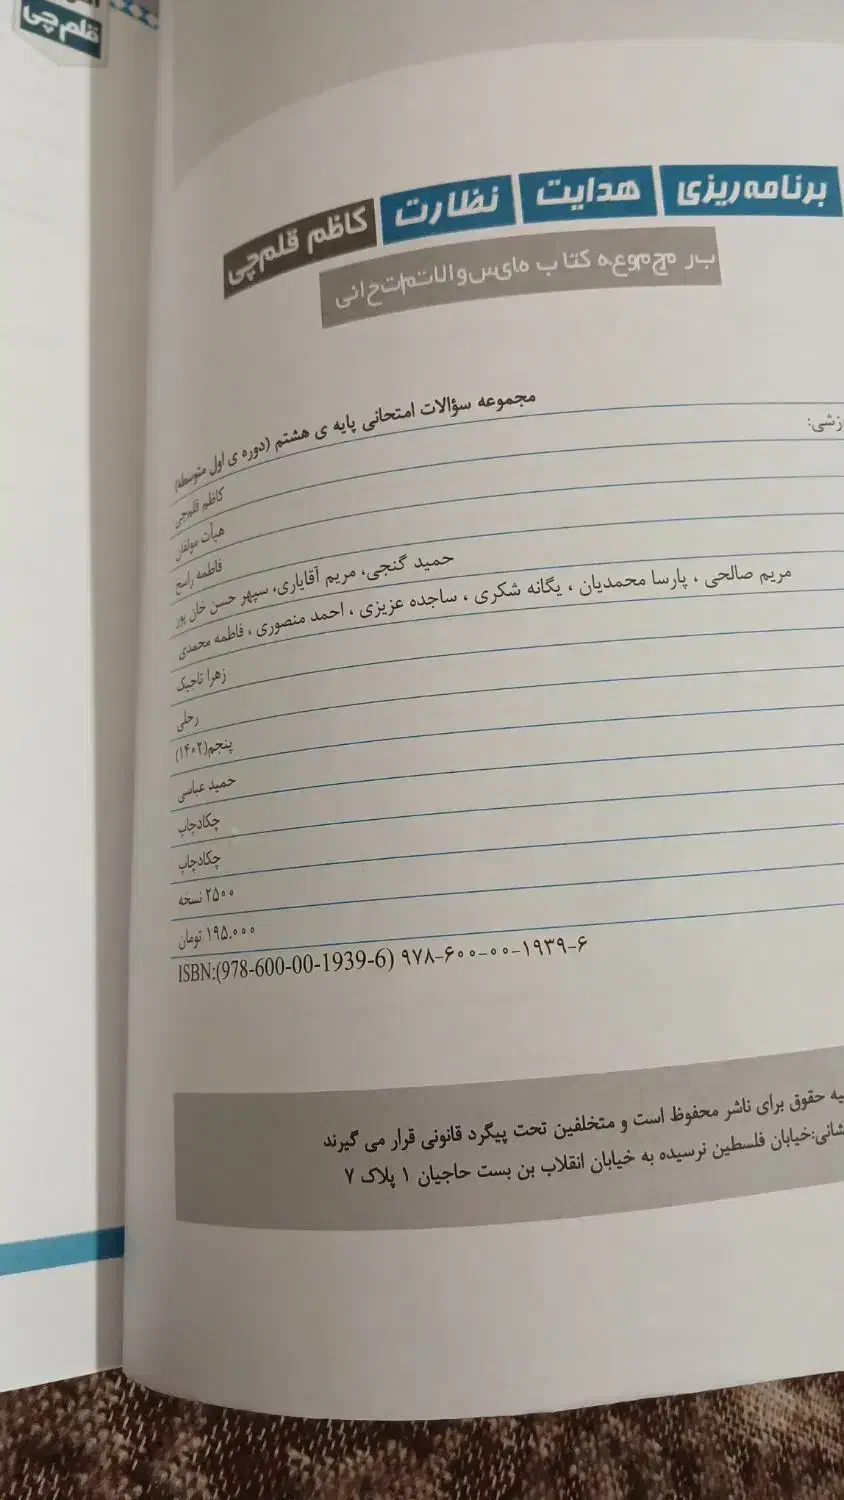 قلم‌چی
برنامه‌ریزی هدایت نظارت کاظم قلم‌چی
بر مجموعه کتاب های سوالات امتحانی
مجموعه سؤالات امتحانی پایه ی هشتم (دوره ی اول متوسطه)
کاظم قلم‌چی
هیأت مولفان
فاطمه راسخ
حمید گنجی، مریم آقایاری، سپهر حسن خان پور
مریم صالحی ، پارسا محمدیان ، یگانه شکری ، ساجده عزیزی ، احمد منصوری ، فاطمه محمدی
زهرا تاجیک
رحلی
پنجم(۱۴۰۲)
حمید عباسی
چکادچاپ
چکادچاپ
۲۵۰۰ نسخه
۱۹۵.۰۰۰ تومان
ISBN:(978-600-00-1939-6) ۹۷۸-۶۰۰-۰۰-۱۹۳۹-۶
حقوق برای ناشر محفوظ است و متخلفین تحت پیگرد قانونی قرار می گیرند
خیابان فلسطین نرسیده به خیابان انقلاب بن بست حاجیان ۱ پلاک ۷